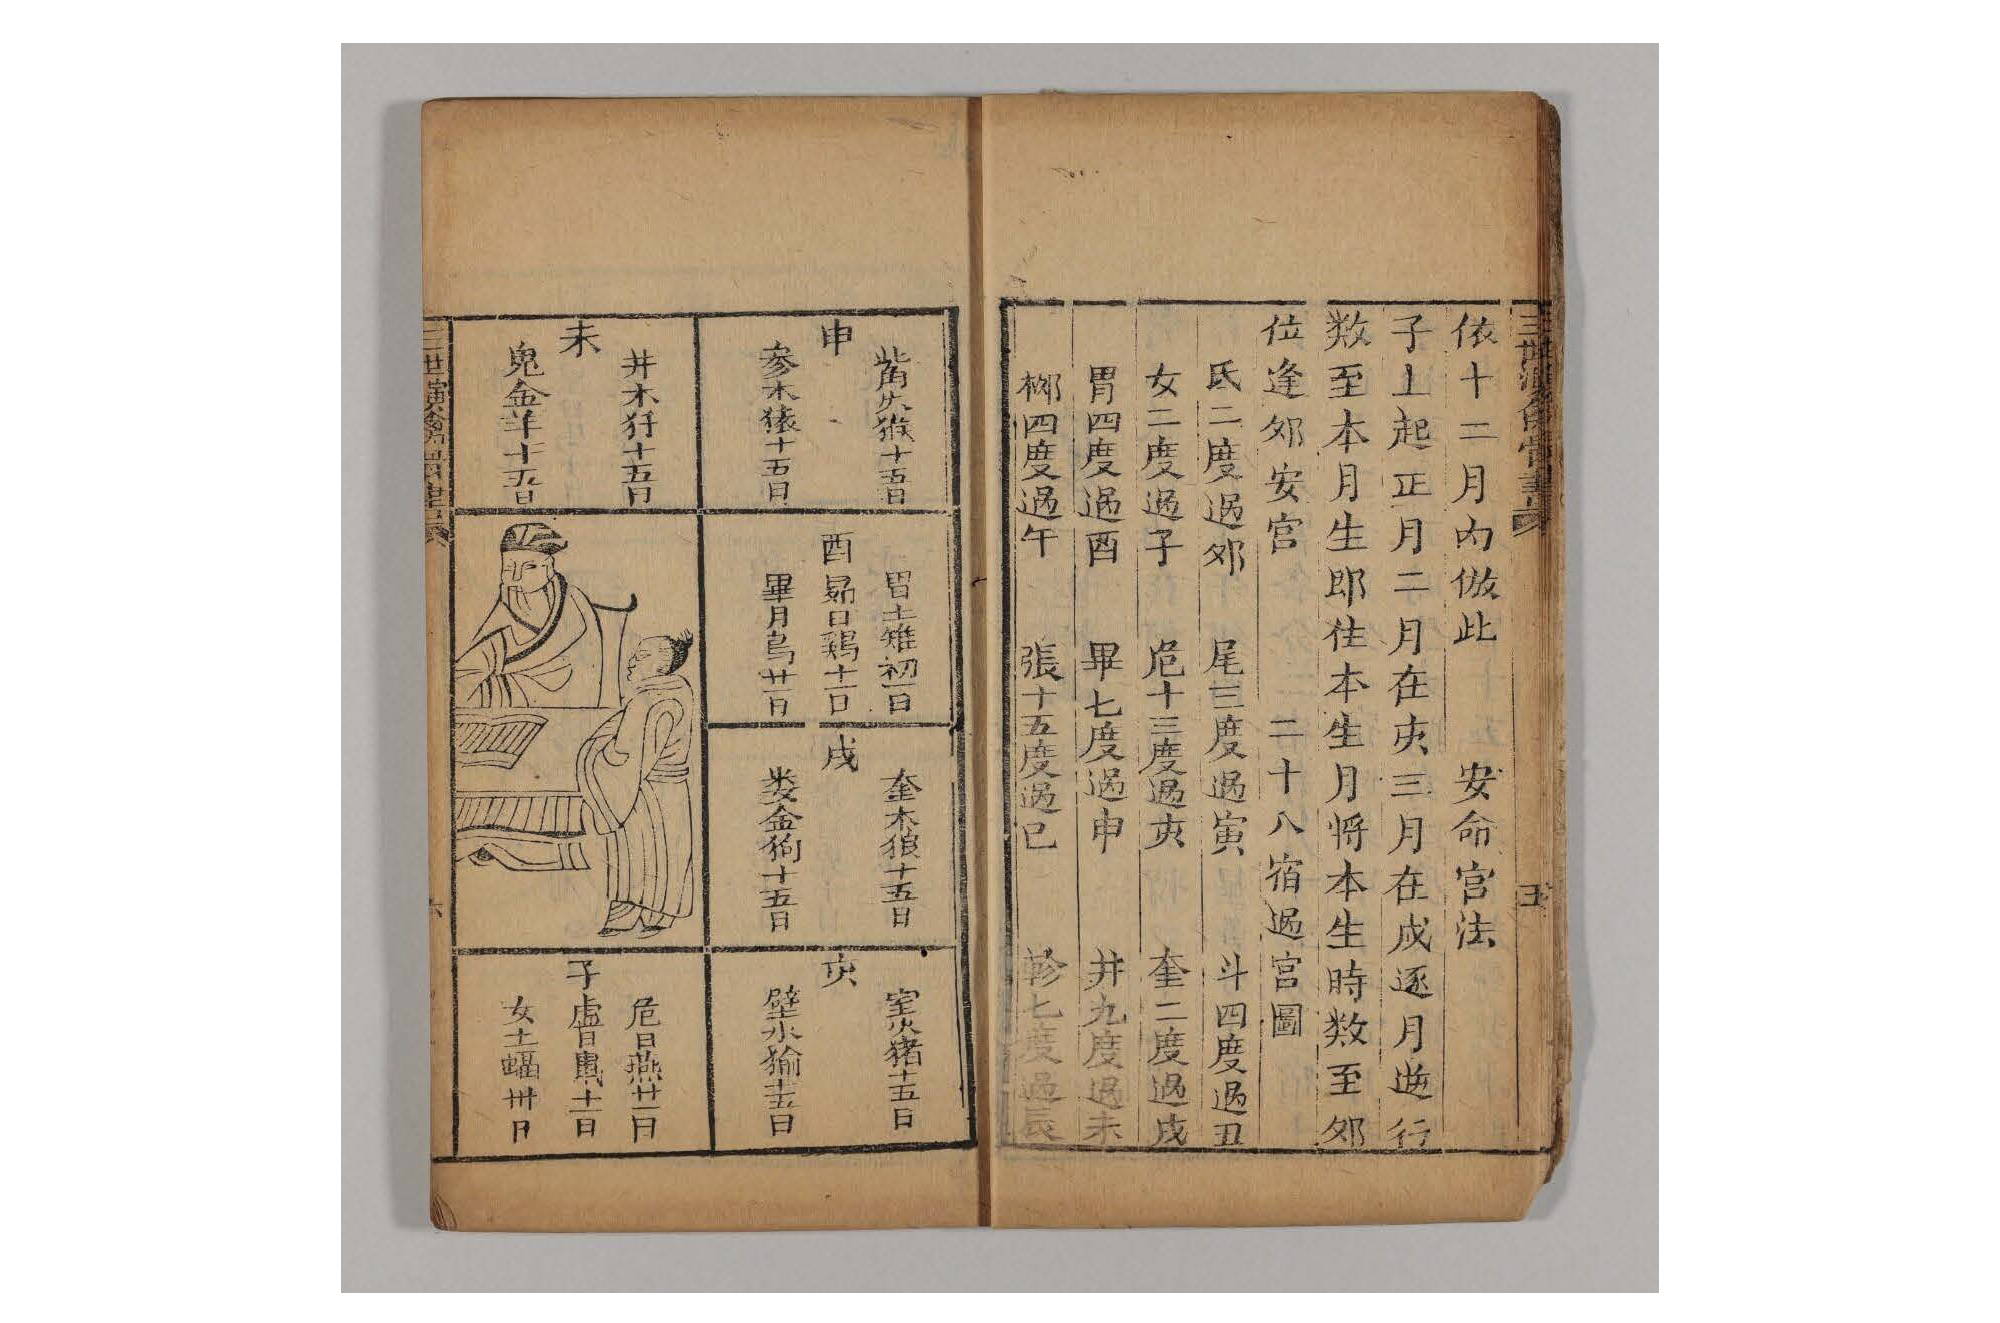 依十二月內倣此　安命宮法
子上起正月二月在亥三月在戌逐月逆行
数至本月生即住本生月將本生時数至夘
位逢夘安宮　二十八宿過宮圖
氐二度過夘　尾三度過寅　斗四度過丑
女二度過子　危十三度過亥　奎二度過戌
胃四度過酉　畢七度過申　井九度過未
桺四度過午　張十五度過巳　軫七度過辰
申
觜火猴十五日
參水猿十五日
未
井木犴十五日
鬼金羊十五日
酉
胃土雉初一日
昴日鷄十一日
畢月烏廿一日
戌
奎木狼十五日
婁金狗十五日
亥
室火猪十五日
壁水㺄十五日
子
危日燕廿一日
虛日鼠十一日
女土蝠卅日
三世演禽
五
六